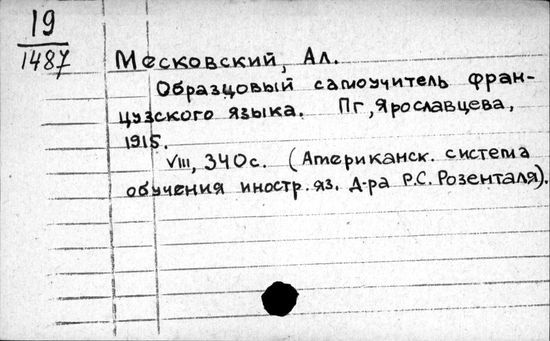 19
1487
Месковский, Ал.
Образцовый самоучитель фран-
цузского языка. Пг, Ярославцева,
1915.
VIII, 340 с. (Американск. система
обучения иностр. яз. Д-ра Р.С. Розенталя).